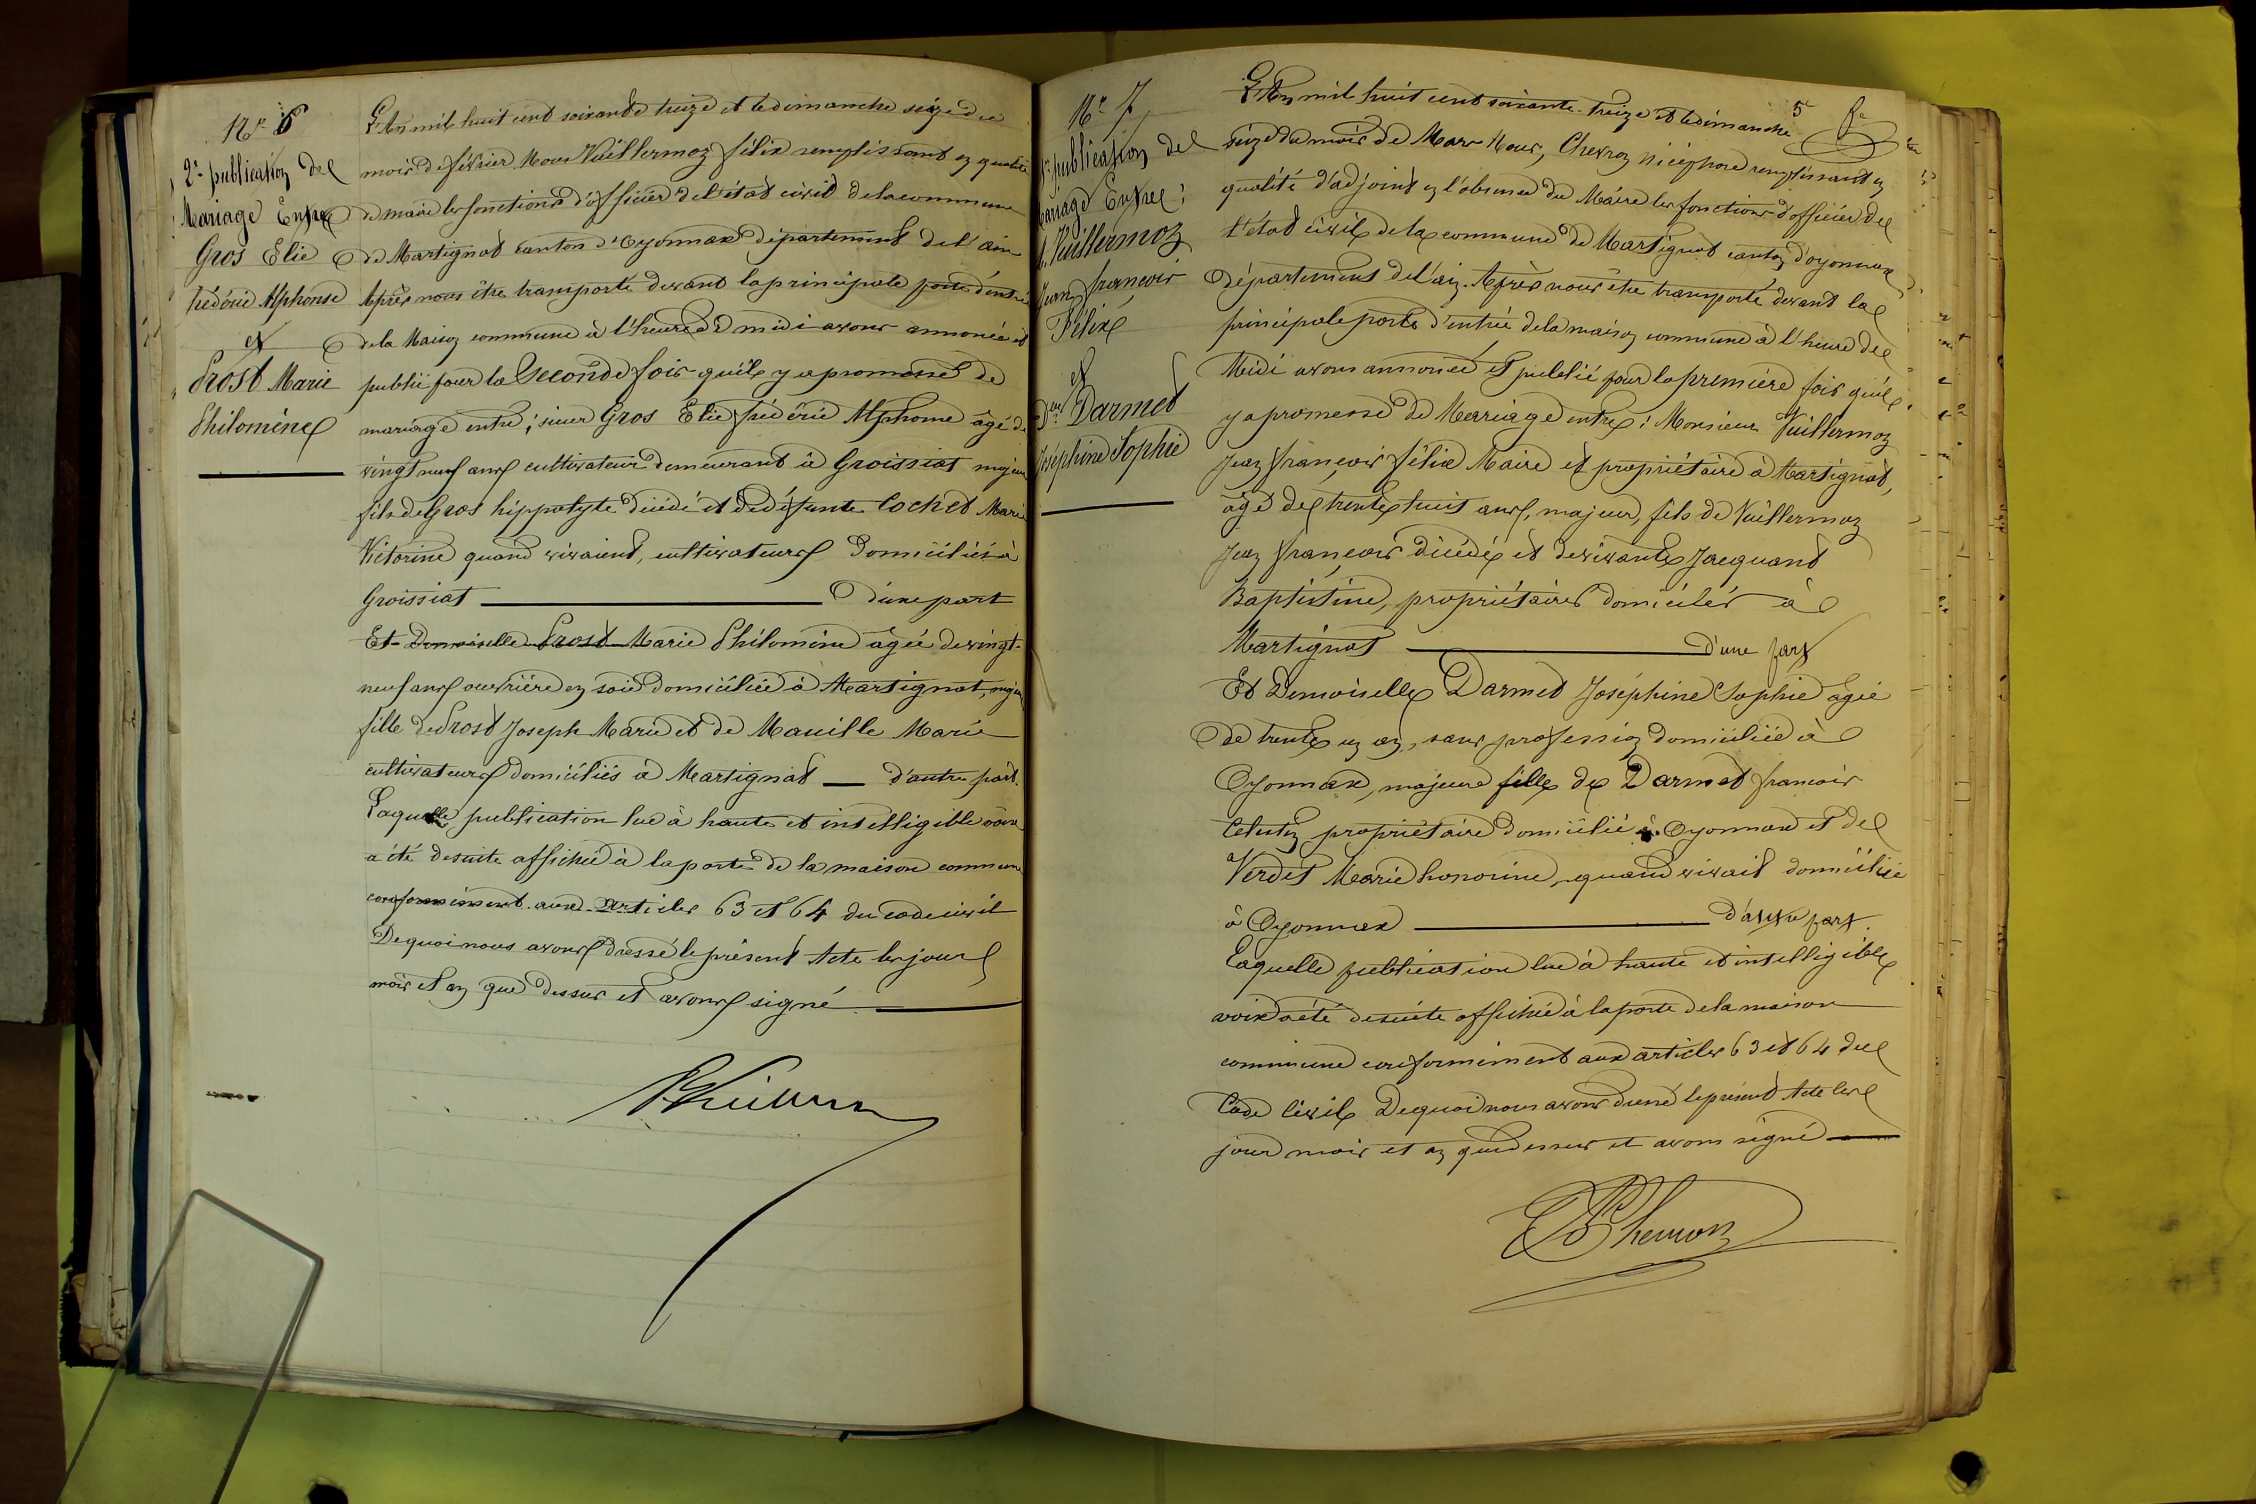 N° 6
2e publication de
Mariage Entre
Gros Elie
frédéric Alphonse
et
Prost Marie
Philomène
L'An mil huit cent soixante treize et le dimanche seize du
mois de février Nous Vuillermoz félix remplissant en qualité
de maire les fonctions d'officier de l'état civil de la commune
de Martignat canton d'Oyonnax département de l'ain
Après nous être transporté devant la principale porte d'entrée
de la Maison commune à l'heure de midi avons annoncé et
publié pour la Seconde fois qu'il y a promesse de
mariage entre ; sieur Gros Elie frédéric Alphonse âgé de
vingt neuf ans cultivateur demeurant à Groissiat majeur
fils de Gros hippolyte décédé et de défunte Cochet Marie
Victorine quand vivaient, cultivateurs domiciliés à
Groissiat d'une part
Et Demoiselle Prost Marie Philomène âgée de vingt-
neuf ans ouvrière en soie domiciliée à Martignat, majeure
fille de Prost Joseph Marie et de Mauille Marie
cultivateurs domiciliés à Martignat d'autre part.
Laquelle publication lue à haute et intelligible voix
a été desuite affichée à la porte de la maison commune
conformément aux articles 63 et 64 du code civil
De quoi nous avons dressé le présent Acte les jour
mois et an que dessus et avons signé
N° 7
1e publication de
Mariage Entre :
Vuillermoz
Jean françois
Félix
et
Dlle Darmet
Joséphine Sophie
5
L'An mil huit cent soixante-treize et le dimanche
seize du mois de Mars Nous, Chevron nicéphore remplissant en
qualité d'adjoint en l'absence du Maire les fonctions d'officier de
l'état civil de la commune de Martignat canton d'oyonnax
Département de l'ain. Après nous être transporté devant la
principale porte d'entrée de la maison commune à l'heure de
Midi avons annoncé et publié pour la première fois qu'il
y a promesse de Mariage entre : Monsieur Vuillermoz
Jean françois félix Maire et propriétaire à Martignat,
âgé de trente huit ans, majeur, fils de Vuillermoz
Jean françois décédé et de vivante Jacquand
Baptistine, propriétaires domiciliés à
Martignat d'une part
Et Demoiselle Darmet Joséphine Sophie âgée
de trente un an, sans profession domiciliée à
Oyonnax, majeure fille de Darmet françois
Célestin propriétaire domicilié à Oyonnax et de
Verdet Marie honorine, quand vivait domiciliée
à Oyonnax d'autre part.
Laquelle publication lue à haute et intelligible
voix a été desuite affichée à la porte de la maison
commune conformément aux articles 63 et 64 du
Code Civil De quoi nous avons dressé le présent Acte les
jour mois et an que dessus et avons signé
Chevron